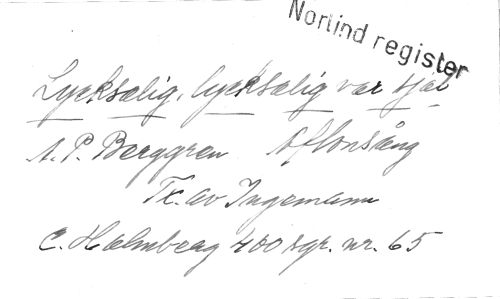 Norlind register
Lycksalig, lycksalig var själ
A. P. Berggren Aftonsång
Tx. av Ingemann
C. Holmberg 400 sgr. nr. 65